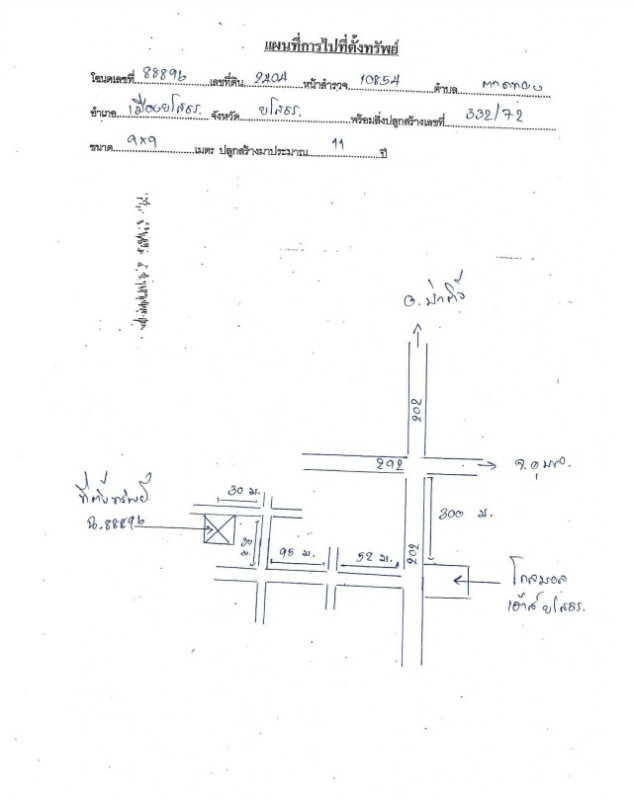 แผนที่การไปที่ตั้งทรัพย์
โฉนดเลขที่ 88896 เลขที่ดิน 2404 หน้าสำรวจ 10854 ตำบล ตาดทอง
อำเภอ เมืองยโสธร จังหวัด ยโสธร. พร้อมสิ่งปลูกสร้างเลขที่ 332/72
ขนาด 9x9 เมตร ปลูกสร้างมาประมาณ 11 ปี
อ.ป่าติ้ว
202
292
จ.อุบล.
30 ม.
ที่ตั้งทรัพย์
ฉ.88896
300 ม.
30 ม.
95 ม.
52 ม.
202
โกลบอล
เฮ้าส์ ยโสธร.